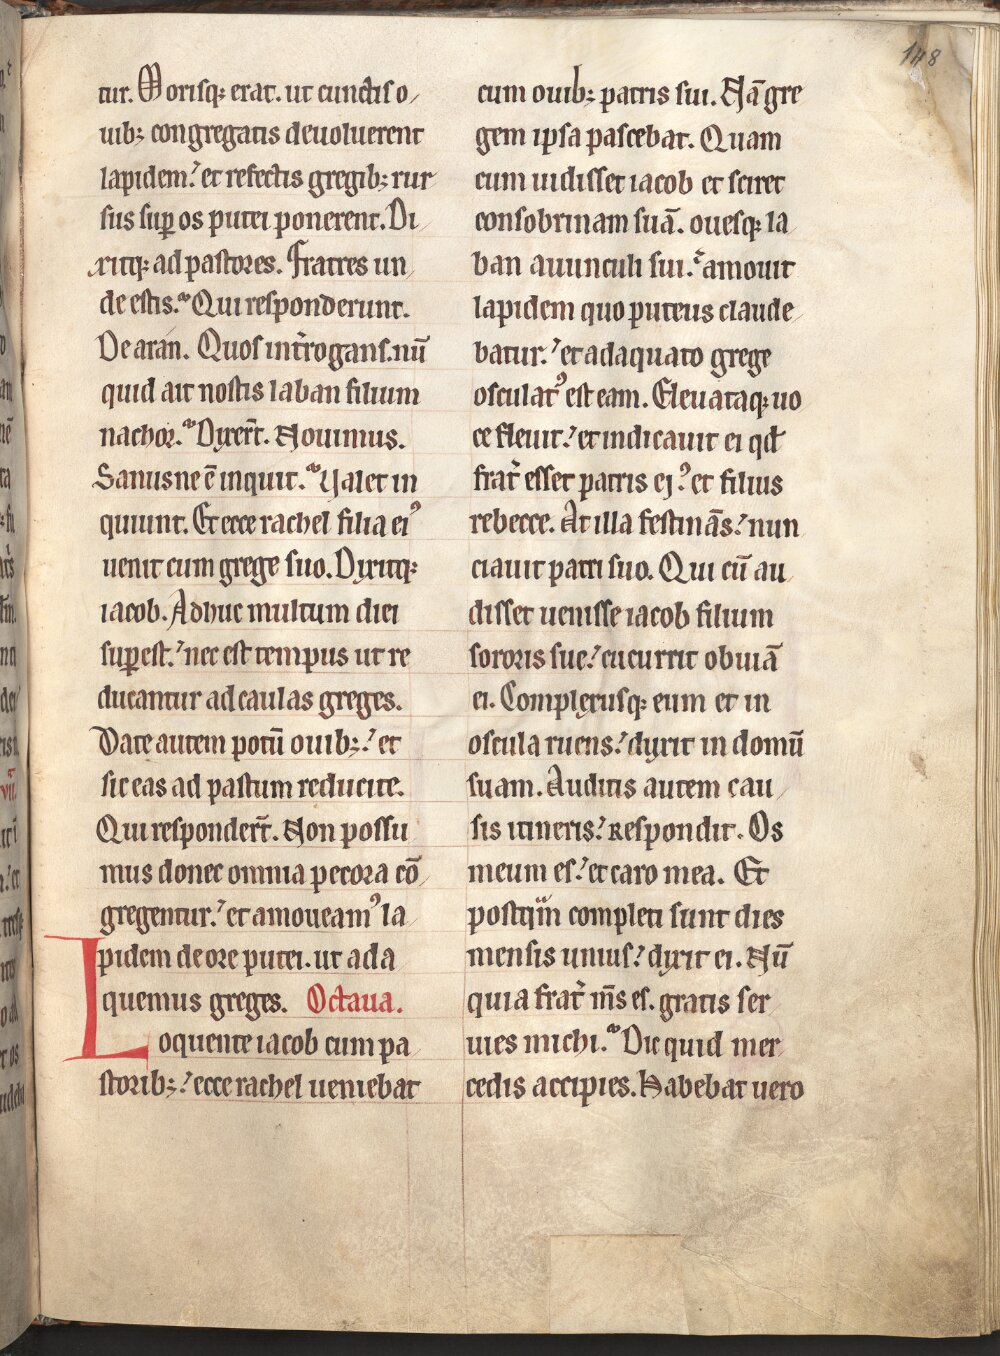 148
tur. Morisq; erat. ut cunctis o
uib; congregatis deuoluerent
lapidem. et refectis gregib; rur
sus sup os putei ponerent. Di
xitq; ad pastores. Fratres un
de estis. Qui responderunt.
De aran. Quos int̾rogans. nū
quid ait nostis laban filium
nachor. Dixer̄t. Nouimus.
Sanusne ē inquit. Valet in
quiunt. Et ecce rachel filia ei᾽
uenit cum grege suo. Dixitq;
iacob. Adhuc multum diei
sup est. nec est tempus ut re
ducantur ad caulas greges.
Date autem potū ouib; et
sic eas ad pastum reducite.
Qui responder̄t. Non possu
mus donec omnia pecora cō
gregentur. et amoueam᾽ la
pidem de ore putei. ut ada
quemus greges. Octaua.
Loquente iacob cum pa
storib; ecce rachel ueniebat
cum ouib; patris sui. Nā gre
gem ipsa pascebat. Quam
cum uidisset iacob et sciret
consobrinam suā. ouesq; la
ban auunculi sui. amouit
lapidem quo puteus claude
batur. et adaquato grege
osculat᾽ est eam. Eleuataq; uo
ce fleuit. et indicauit ei qđ
frat̾ esset patris ej᾽ et filius
rebecce. At illa festinās. nun
ciauit patri suo. Qui cū au
disset uenisse iacob filium
sororis sue. cucurrit obuiā
ei. Complexusq; eum et in
oscula ruens. duxit in domū
suam. Auditis autem cau
sis itineris. Respondit. Os
meum es. et caro mea. Et
postqm̄ completi sunt dies
mensis unius. dixit ei. Nū
quia frat̾ m̄s es. gratis ser
uies michi. Dic quid mer
cedis accipies. Habebat uero